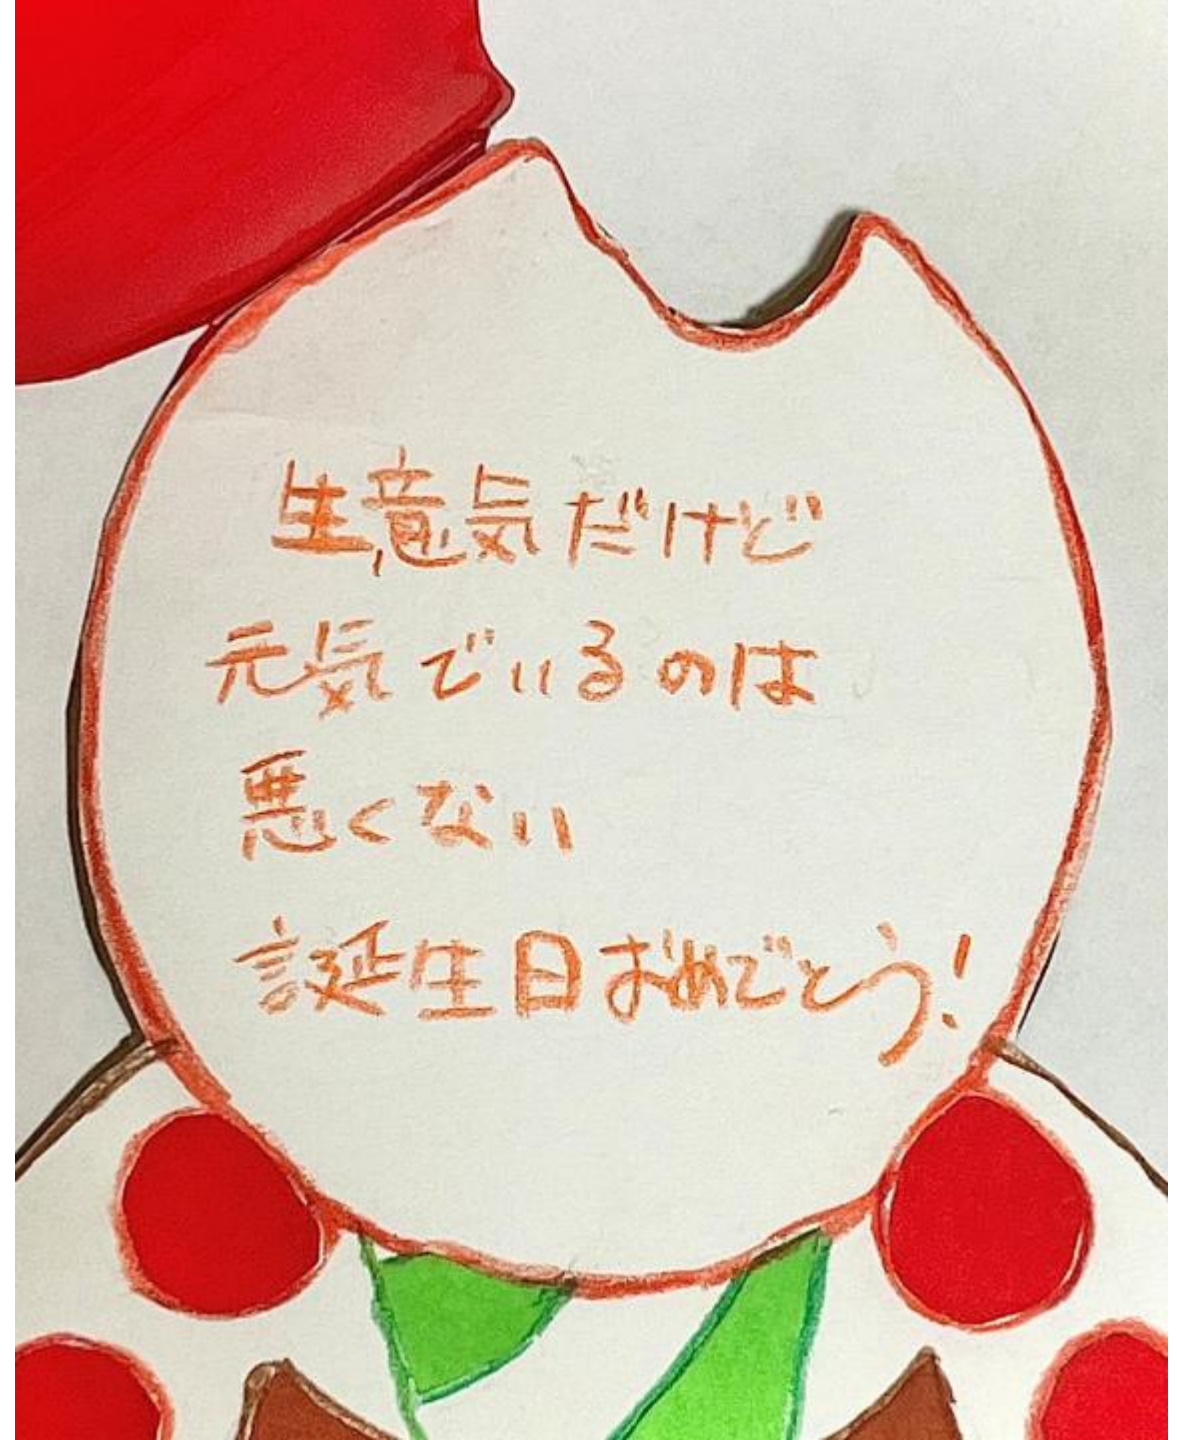 生意気だけど
元気でいるのは
悪くない
誕生日おめでとう!